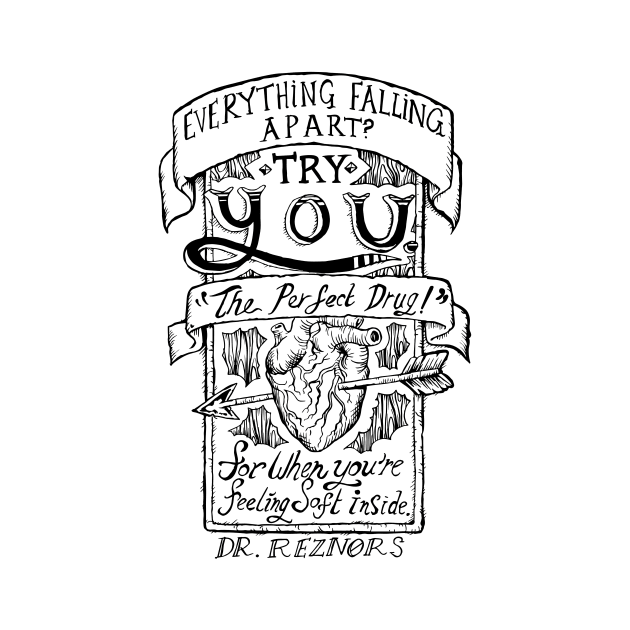 EVERYTHING FALLING
APART?
TRY
YOU
"The Perfect Drug!"
for When you're
feeling Soft inside.
DR. REZNORS